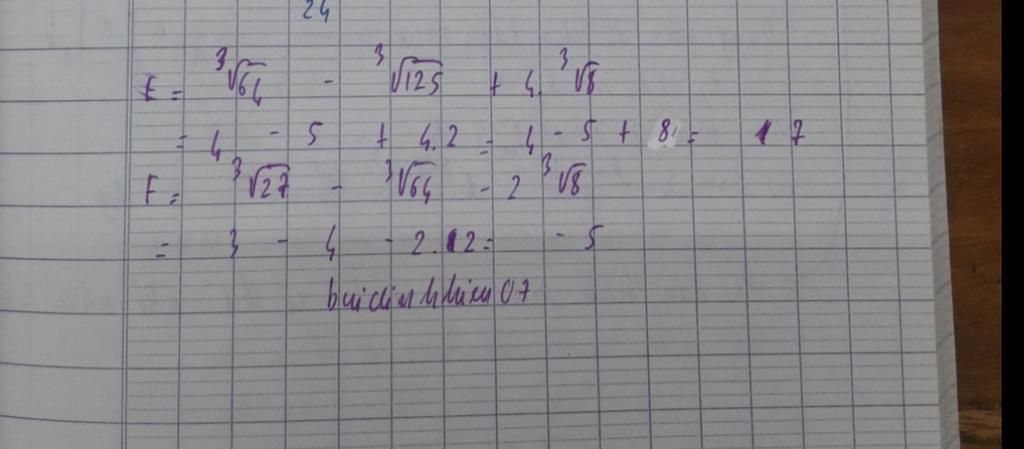 24
E = ³√64 - ³√125 + 4. ³√8
= 4 - 5 + 4.2 = 4 - 5 + 8 = 7
F = ³√27 - ³√64 - 2 ³√8
= 3 - 4 - 2.2 = - 5
buidinhhieu07